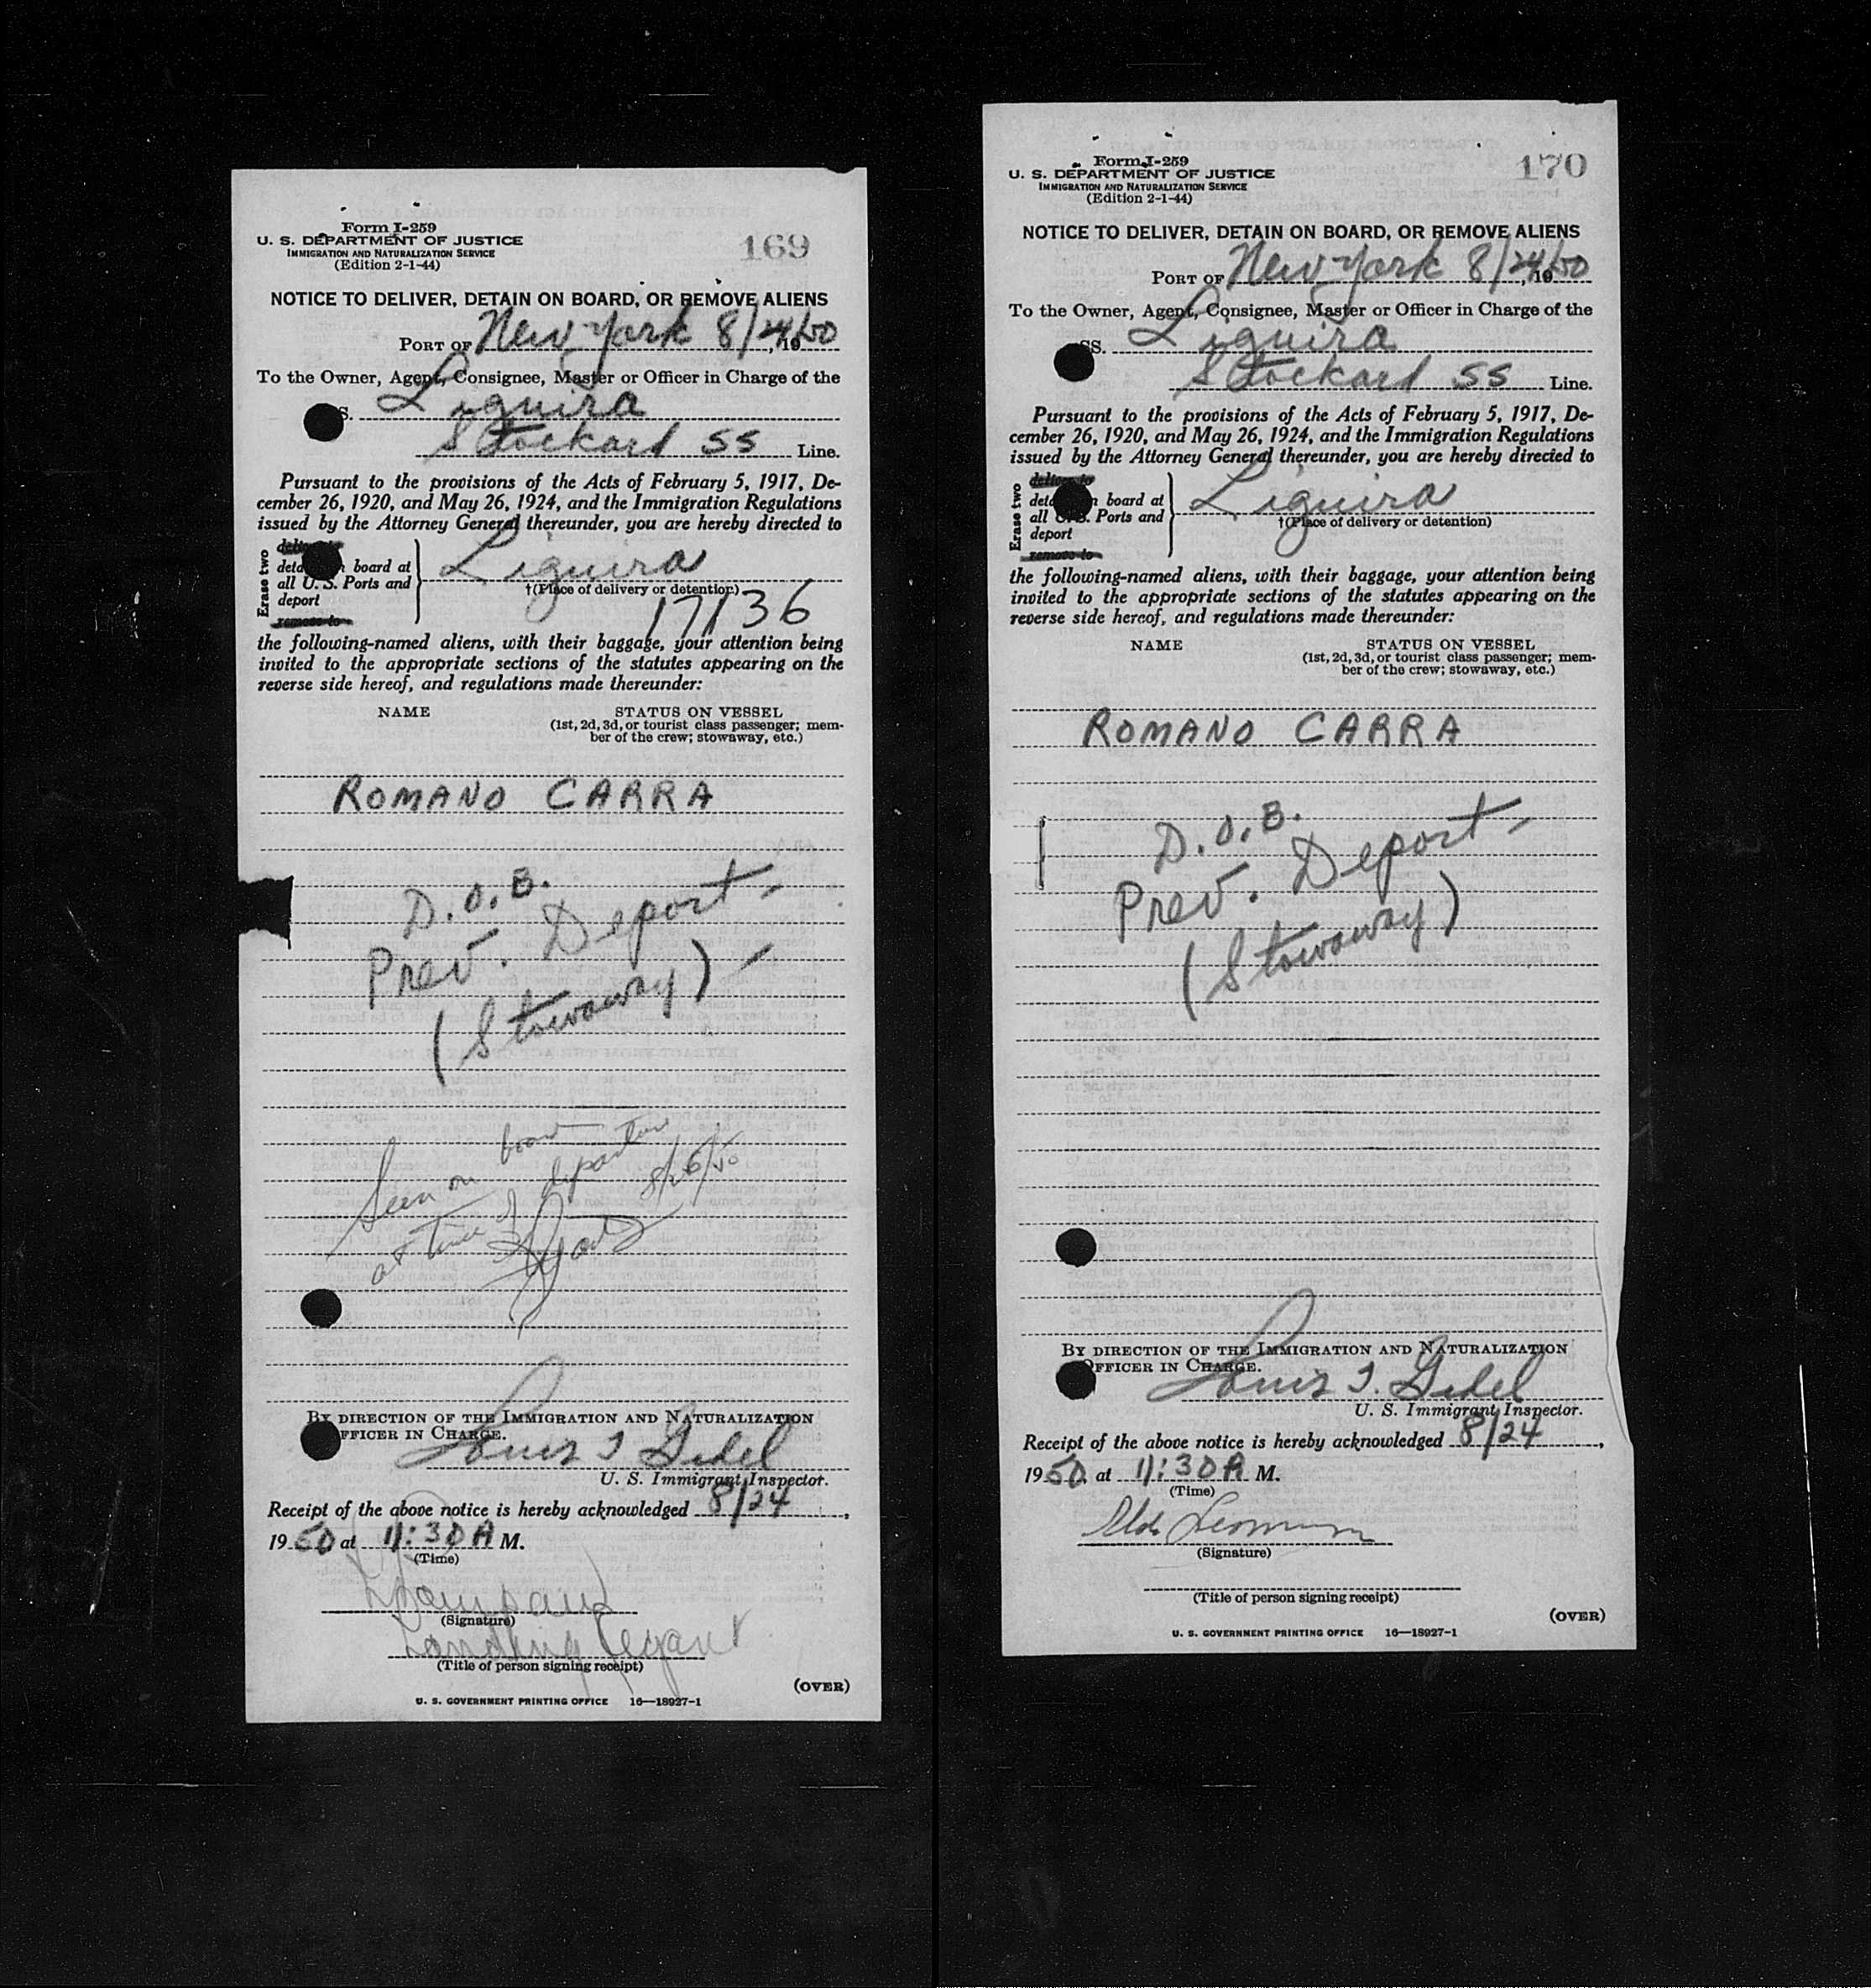 Form I-259
U. S. DEPARTMENT OF JUSTICE
IMMIGRATION AND NATURALIZATION SERVICE
(Edition 2-1-44)
169
NOTICE TO DELIVER, DETAIN ON BOARD, OR REMOVE ALIENS
PORT OF New York 8/24, 1950
To the Owner, Agent, Consignee, Master or Officer in Charge of the
S. Liguira
Stockard SS Line.
Pursuant to the provisions of the Acts of February 5, 1917, De-
cember 26, 1920, and May 26, 1924, and the Immigration Regulations
issued by the Attorney General thereunder, you are hereby directed to
Erase two
deliver to
board at
all U. S. Ports and
deport
remove to
Liguira
†(Place of delivery or detention)
17136
the following-named aliens, with their baggage, your attention being
invited to the appropriate sections of the statutes appearing on the
reverse side hereof, and regulations made thereunder:
NAME STATUS ON VESSEL
(1st, 2d, 3d, or tourist class passenger; mem-
ber of the crew; stowaway, etc.)
ROMANO CARRA
D.O.B.
Prev. Deport-
(Stowaway) -
Seen on board
at time of departure 8/26/50
BY DIRECTION OF THE IMMIGRATION AND NATURALIZATION
OFFICER IN CHARGE.
Louis I Gidel
U. S. Immigrant Inspector.
Receipt of the above notice is hereby acknowledged 8/24,
1950 at 11:30 A M.
(Time)
(Signature)
(Title of person signing receipt)
(OVER)
U. S. GOVERNMENT PRINTING OFFICE 16—18927-1
Form I-259
U. S. DEPARTMENT OF JUSTICE
IMMIGRATION AND NATURALIZATION SERVICE
(Edition 2-1-44)
170
NOTICE TO DELIVER, DETAIN ON BOARD, OR REMOVE ALIENS
PORT OF New York 8/24, 1950
To the Owner, Agent, Consignee, Master or Officer in Charge of the
SS. Liguira
Stockard SS Line.
Pursuant to the provisions of the Acts of February 5, 1917, De-
cember 26, 1920, and May 26, 1924, and the Immigration Regulations
issued by the Attorney General thereunder, you are hereby directed to
Erase two
deliver to
board at
all U. S. Ports and
deport
remove to
Liguira
†(Place of delivery or detention)
the following-named aliens, with their baggage, your attention being
invited to the appropriate sections of the statutes appearing on the
reverse side hereof, and regulations made thereunder:
NAME STATUS ON VESSEL
(1st, 2d, 3d, or tourist class passenger; mem-
ber of the crew; stowaway, etc.)
ROMANO CARRA
D.O.B.
Prev. Deport-
(Stowaway)
BY DIRECTION OF THE IMMIGRATION AND NATURALIZATION
OFFICER IN CHARGE.
Louis I. Gidel
U. S. Immigrant Inspector.
Receipt of the above notice is hereby acknowledged 8/24,
1950 at 11:30 A M.
(Time)
(Signature)
(Title of person signing receipt)
(OVER)
U. S. GOVERNMENT PRINTING OFFICE 16—18927-1